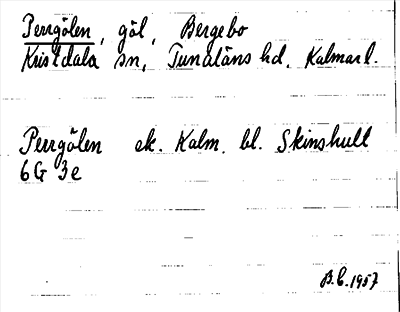 Perrgölen, göl, Bergebo
Kristdala sn, Tunaläns hd, Kalmar l.
Perrgölen ek. Kalm. bl. Skinshult
6G 3e
B.E. 1957